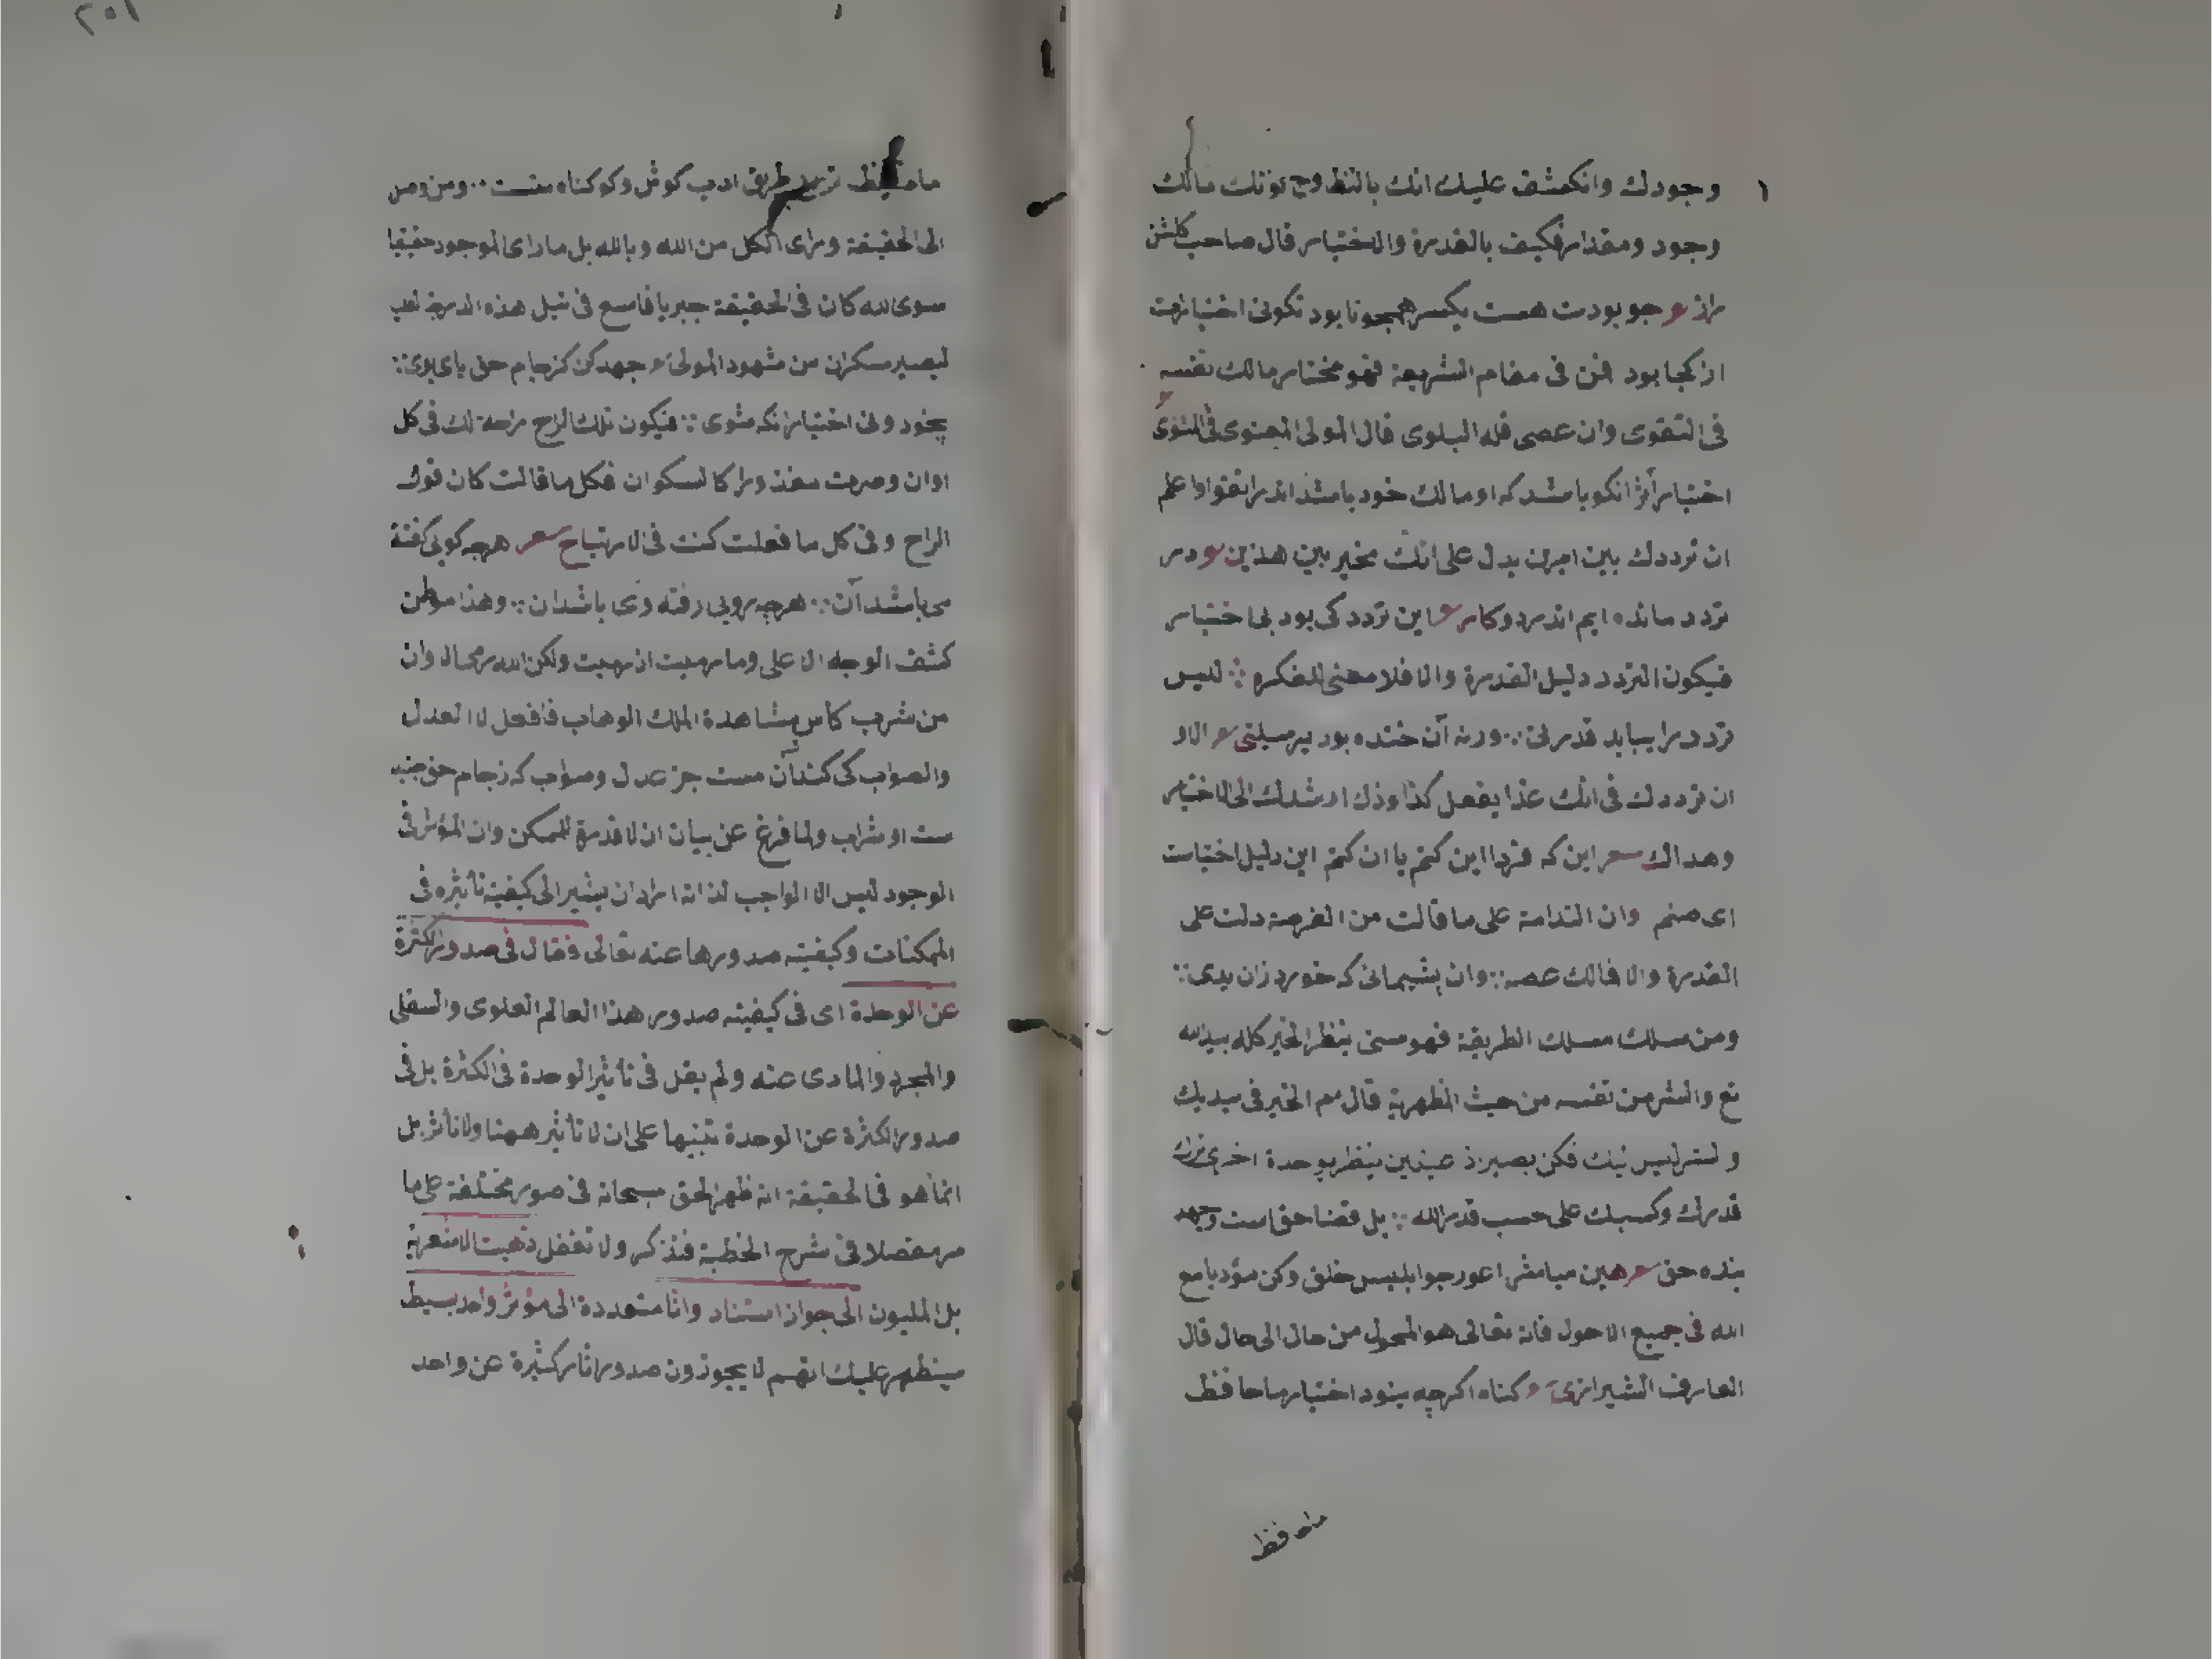 وجودك وانكشف عليك انك بالنظر وح تونك مالك
وجود ومقدار فكيف بالقدرة والاختيار قال صاحب كلشن
راز ع جو بودت هست يكسر همجو نابود نكوئى اختيارت
از كجا بود فمن فى مقام الشريعة فهو مختار مالك نفسه
فى التقوى وان عصى فله البلوى قال المولى المعنوى فى المثنوى
اختيار آنرا نكو باشد كه او مالك خود باشد اندر اتقوا واعلم
ان ترددك بين امرين يدل على انك مخير بين هذين ع در
تردد مانده ايم اندر دو كار ع اين تردد كى بود بى اختيار
فيكون التردد دليل القدرة والا فلا معنى للفكره ∴ لليس
تردد را ببايد قدرتى ∴ ورنه آن خنده بود بر سبلتى ع الا و
ان ترددك فى انك غدا يفعل كذا وذك ارشدك الى الاختيار
وهداك شعر اين كه فردا اين كنم يا ان كنم اين دليل اختيارست
اى صنم وان الندامة على ما فالت من الفرصة دلت على
القدرة والا فالك عصه ∴ وان پشيمانى كه خوردى زان بدى ∴
ومن سلك مسلك الطريقة فهو ممن ينظر الخير كله بيد الله
تع والشر من نفسه من حيث المظهرية قال عم الخير فى بيديك
والشر ليس اليك فكن بصيرا ذ عينين ينظر بوحدة اخرى ترك
قدرك وكسبك على حسب قدر الله ∴ بل قضا حق است وجهد
بنده حق شعر هين مباش اعور جو ابليس خلق وكن مؤدبا مع
الله فى جميع الاحول فانه تعالى هو المحول من حال الى حال قال
العارف الشيرازى ع كناه اكرچه نبود اختيار ما حافظ
ما حافظ
٢٠١
ما حافظ تو در طريق ادب كوش وكو كناه منست ∴ ومن وصل
الى الحقيقة وراى الكل من الله وبالله بل ما راى الموجود حقيقيا
سوى الله كان فى الحقيقة جبريا فاسع فى نيل هذه الدرجة لعب
ليصير سكران من شهود المولى ع جهد كن كز جام حق يابى نوى ∴
بيخود وبى اختيار انكه شوى ∴ فيكون تلك الراح راحة لك فى كل
اوان وصرت معذورا كالسكران فكل ما قالت كان قول
الراح وفى كل ما فعلت كنت فى الارتياح شعر هرچه كوئى كفته
مى باشد آن ∴ هرچه روبى رفته وى باشد ان ∴ وهذا موطن
كشف الوجه الاعلى وما رميت اذ رميت ولكن الله رمى الا وان
من شرب كاس مشاهدة الملك الوهاب فافعل الا العدل
والصواب كى كند آن مست جز عدل وصواب كه زجام حق چشيد
ست او شراب ولما فرغ عن بيان ان لا قدرة للممكن وان المؤثر فى
الوجود ليس الا الواجب لذاته اراد ان يشير الى كيفية تأثيره فى
الممكنات وكيفية صدورها عنه تعالى فقال فى صدور الكثرة
عن الوحدة اى فى كيفية صدور هذا العالم العلوى والسفلى
والمجرد والمادى عنه ولم يقل فى تأثير الوحدة فى الكثرة بل فى
صدور الكثرة عن الوحدة تنبيها على ان لا تأثير ههنا ولا تأثر بل
انما هو فى الحقيقة انه ظهر الحق سبحانه فى صور مختلفة على ما
مر مفصلا فى شرح الخطبة فتذكر ولا تغفل ذهبت الاشعرية
بل المليون الى جواز استناد واثا متعددة الى مؤثر واحد بسيط
سيظهر عليك انهم لا يجوزون صدور اثار كثيرة عن واحد